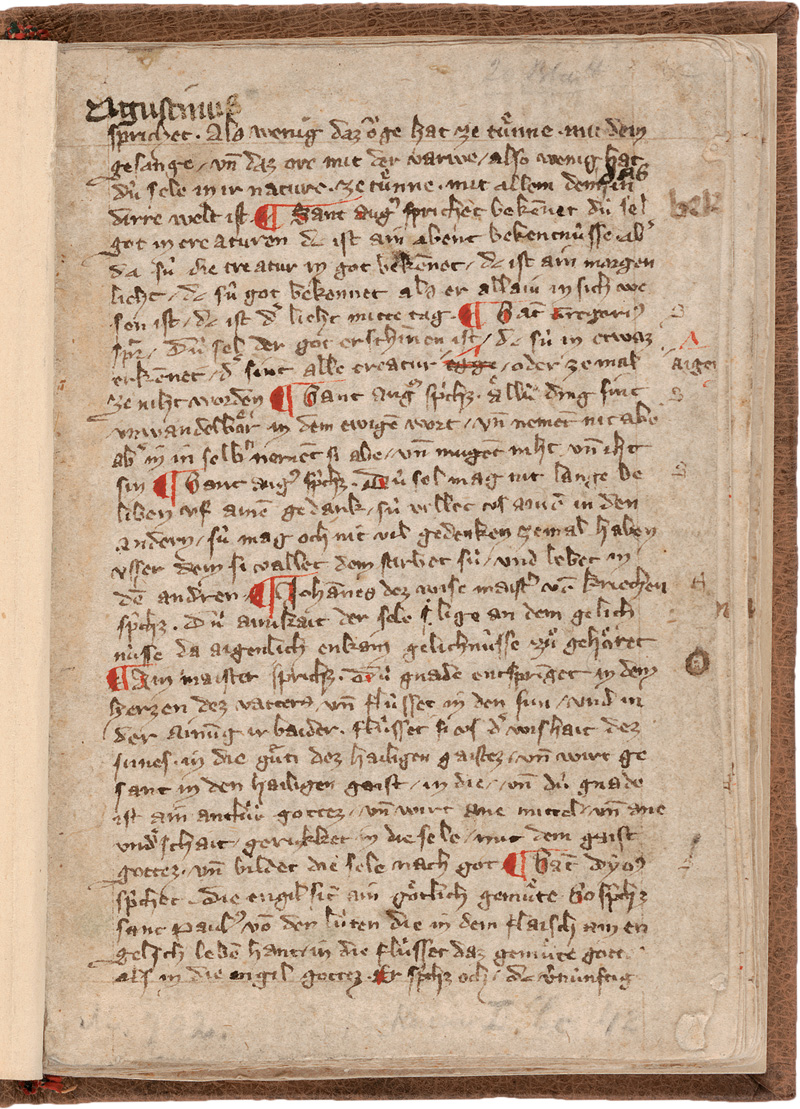 Agustinus
sprichet · Als wenig daz oͮge hat ze tuͦnne · mit dem
gesange / vn̄ daz ore mit der varwe / also wenig hat
duͥ sele in ir nature · ze tuͦnne · mit allem dem daz in
dirre welt ist ¶ Sant aug᾽ sprichet bekēnet duͥ sel
got in creaturen dc ist ain abent bekentnuͥsse · ab᾽
da suͥ die creatur in got bekēnet / dc ist ain morgen
licht / dc suͥ got bekennet als er allain in sich we
sen ist / dc ist d᾽ lieht mitte tag · ¶ Sāt Gregori᾽
spr̄ / Duͥ sel der got erschinen ist / dc suͥ in etwaz
erkēnet / d᾽ sint alle creatur / oder ze mal
ze niht worden ¶ Sant aug᾽ sp̄chz · alluͥ ding sint
vnwandelbaͤr in dem ewigē wort / vn̄ nement nit abe
ab᾽ in in selb᾽ nement si abe / vn̄ mugēt niht vn̄ iht
sin ¶ Sant aug᾽ sp̄chz · Duͥ sel mag nit lange be
liben vf ainē gedank / suͥ vellet vs ainē in den
andern / suͥ mag och nit vil gedenken ze mal haben
vsser dem si wallet dem starbet suͥ / und lebet in
dē andren · ¶ Johānes dez wise maist᾽ vō kriechen
sp̄chz · Duͥ ainikait der sele lige an dem gelich
nuͥsse da aigenlich enkain gelichnuͥsse zuͦ gehoͤret
¶ Ain maister sprichz · Duͥ gnade entspringet in dem
herzen dez vatters / vn̄ fluͥsset in den sun / vnd in
der ainūg ir baider · fluͥsset si vs d᾽ wishait dez
sunes · in die guͤti dez hailigen gaistez / vn̄ wirt ge
sant in den hailigen gaist / in die / vn̄ duͥ gnade
ist ain antluͥt gottez / vn̄ wirt ane mittel / vn̄ ane
vnd᾽schait / gerukket in die sele / mit dem gaist
gottez · vn̄ bildet die sele nach got ¶ Sāt dyo᾽
sp̄chet · die engil sīt ain goͤtlich gemuͤte So sp̄chz
sant Paul᾽ vō den luͥten die in dem flaisch am en
gelsch lebē hant / in die fluͥsset daz gemuͤte gott
als in die engil gottez · Er sp̄chz och / dc v᾽nuͥnftig
bek
aigen